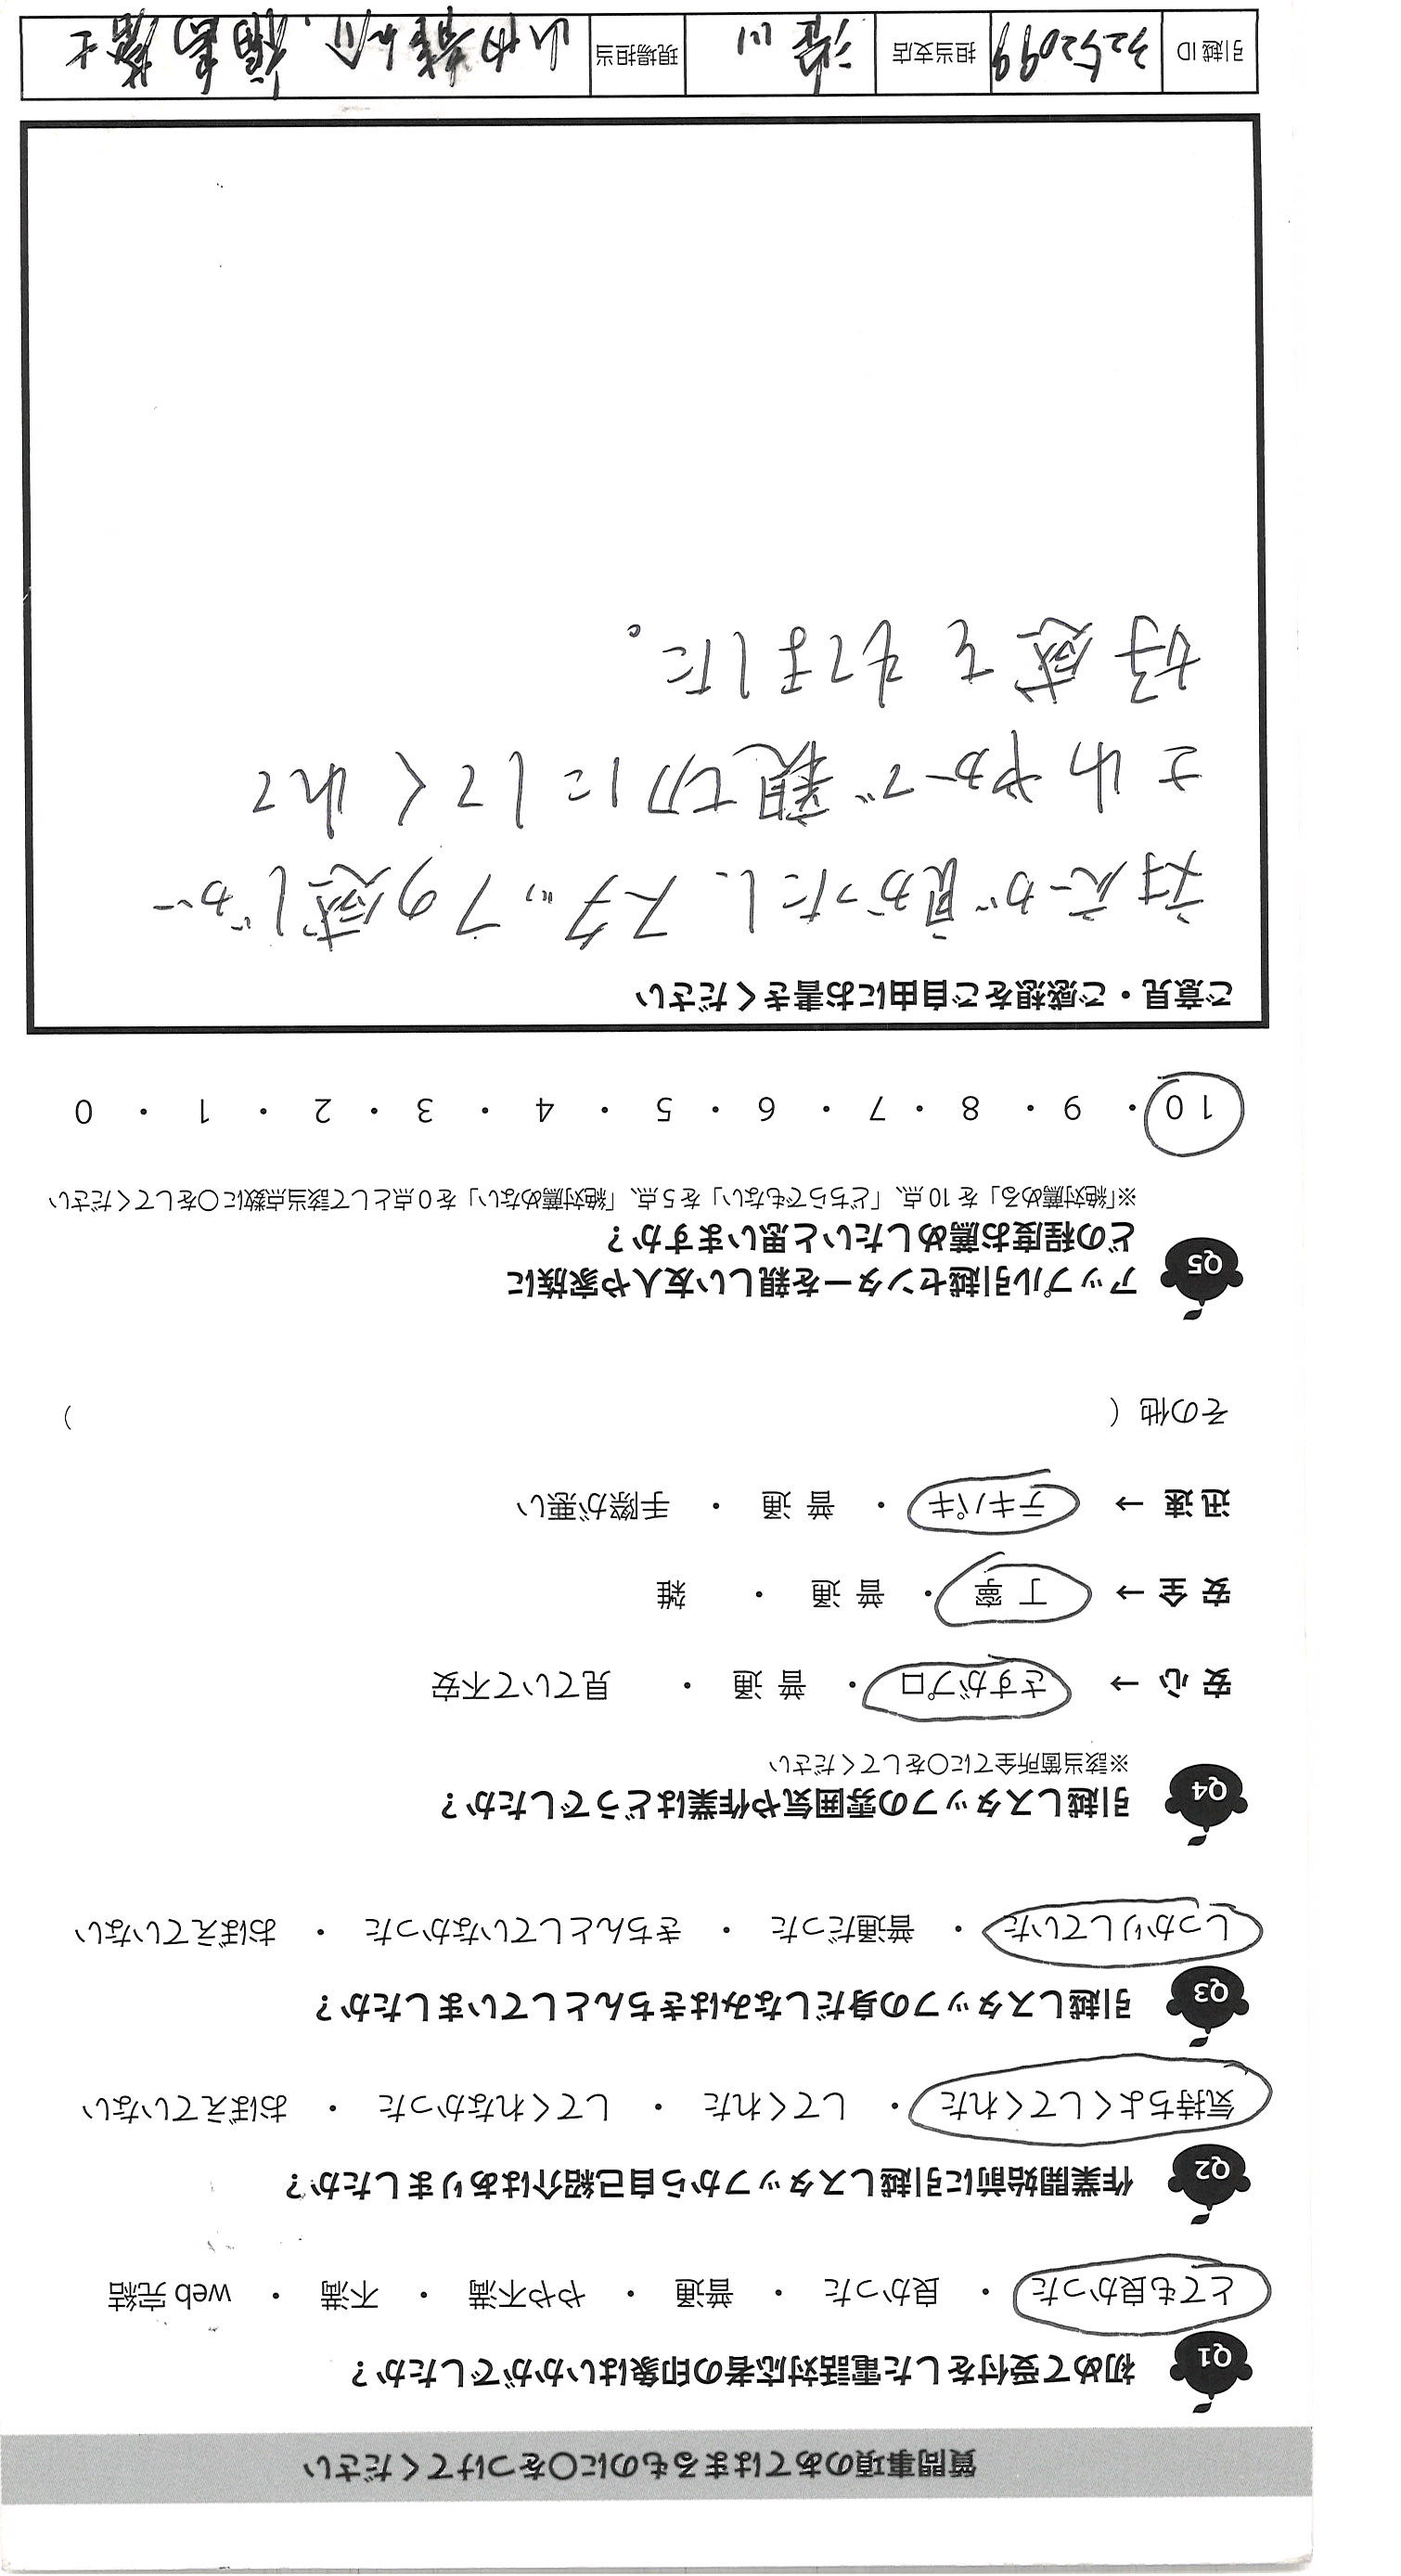 質問事項のあてはまるものに○をつけてください
Q1 初めて受付をした電話対応者の印象はいかがでしたか？
とても良かった ・ 良かった ・ 普通 ・ やや不満 ・ 不満 ・ web 完結
Q2 作業開始前に引越しスタッフから自己紹介はありましたか？
気持ちよくしてくれた ・ してくれた ・ してくれなかった ・ おぼえていない
Q3 引越しスタッフの身だしなみはきちんとしていましたか？
しっかりしていた ・ 普通だった ・ きちんとしていなかった ・ おぼえていない
Q4 引越しスタッフの雰囲気や作業はどうでしたか？
※該当箇所全てに○をしてください
安 心 → さすがプロ ・ 普 通 ・ 見ていて不安
安 全 → 丁 寧 ・ 普 通 ・ 雑
迅 速 → テキパキ ・ 普 通 ・ 手際が悪い
その他（ ）
Q5 アップル引越センターを親しい友人や家族に
どの程度お薦めしたいと思いますか？
※「絶対薦める」を 10 点、「どちらでもない」を 5 点、「絶対薦めない」を 0 点として該当点数に○をしてください
10 ・ 9 ・ 8 ・ 7 ・ 6 ・ 5 ・ 4 ・ 3 ・ 2 ・ 1 ・ 0
ご意見・ご感想をご自由にお書きください
対応が良かったし、スタッフの感じが
さわやかで親切にしてくれて
好感をもてました。
引越 ID 3252099 担当支店 港川 現場担当 山内